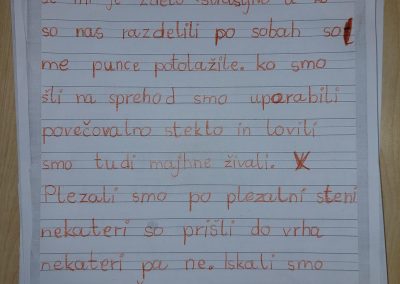 mi je zdelo strašno a ko
so nas razdelili po sobah so
me punce potolažile. ko smo
šli na sprehod smo uporabili
povečovalno steklo in lovili
smo tudi majhne živali.
Plezali smo po plezalni steni
nekateri so prišli do vrha
nekateri pa ne. Iskali smo